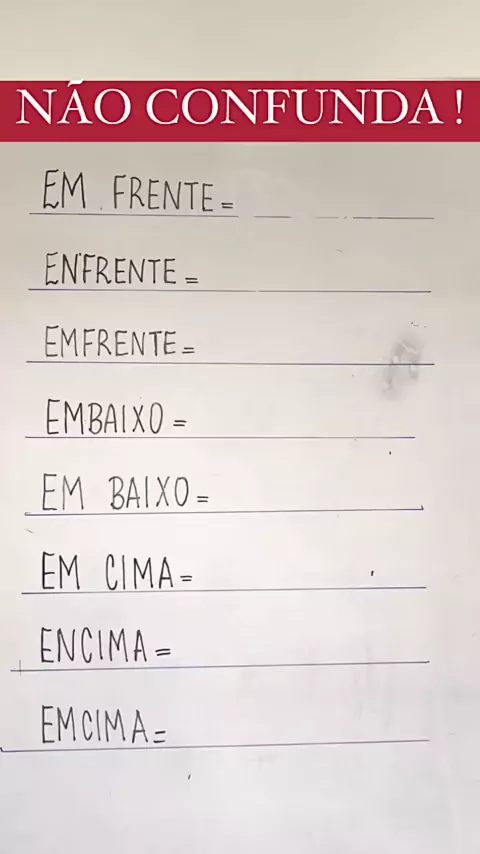 NÃO CONFUNDA!
EM FRENTE=
ENFRENTE=
EMFRENTE=
EMBAIXO=
EM BAIXO=
EM CIMA=
ENCIMA=
EMCIMA=